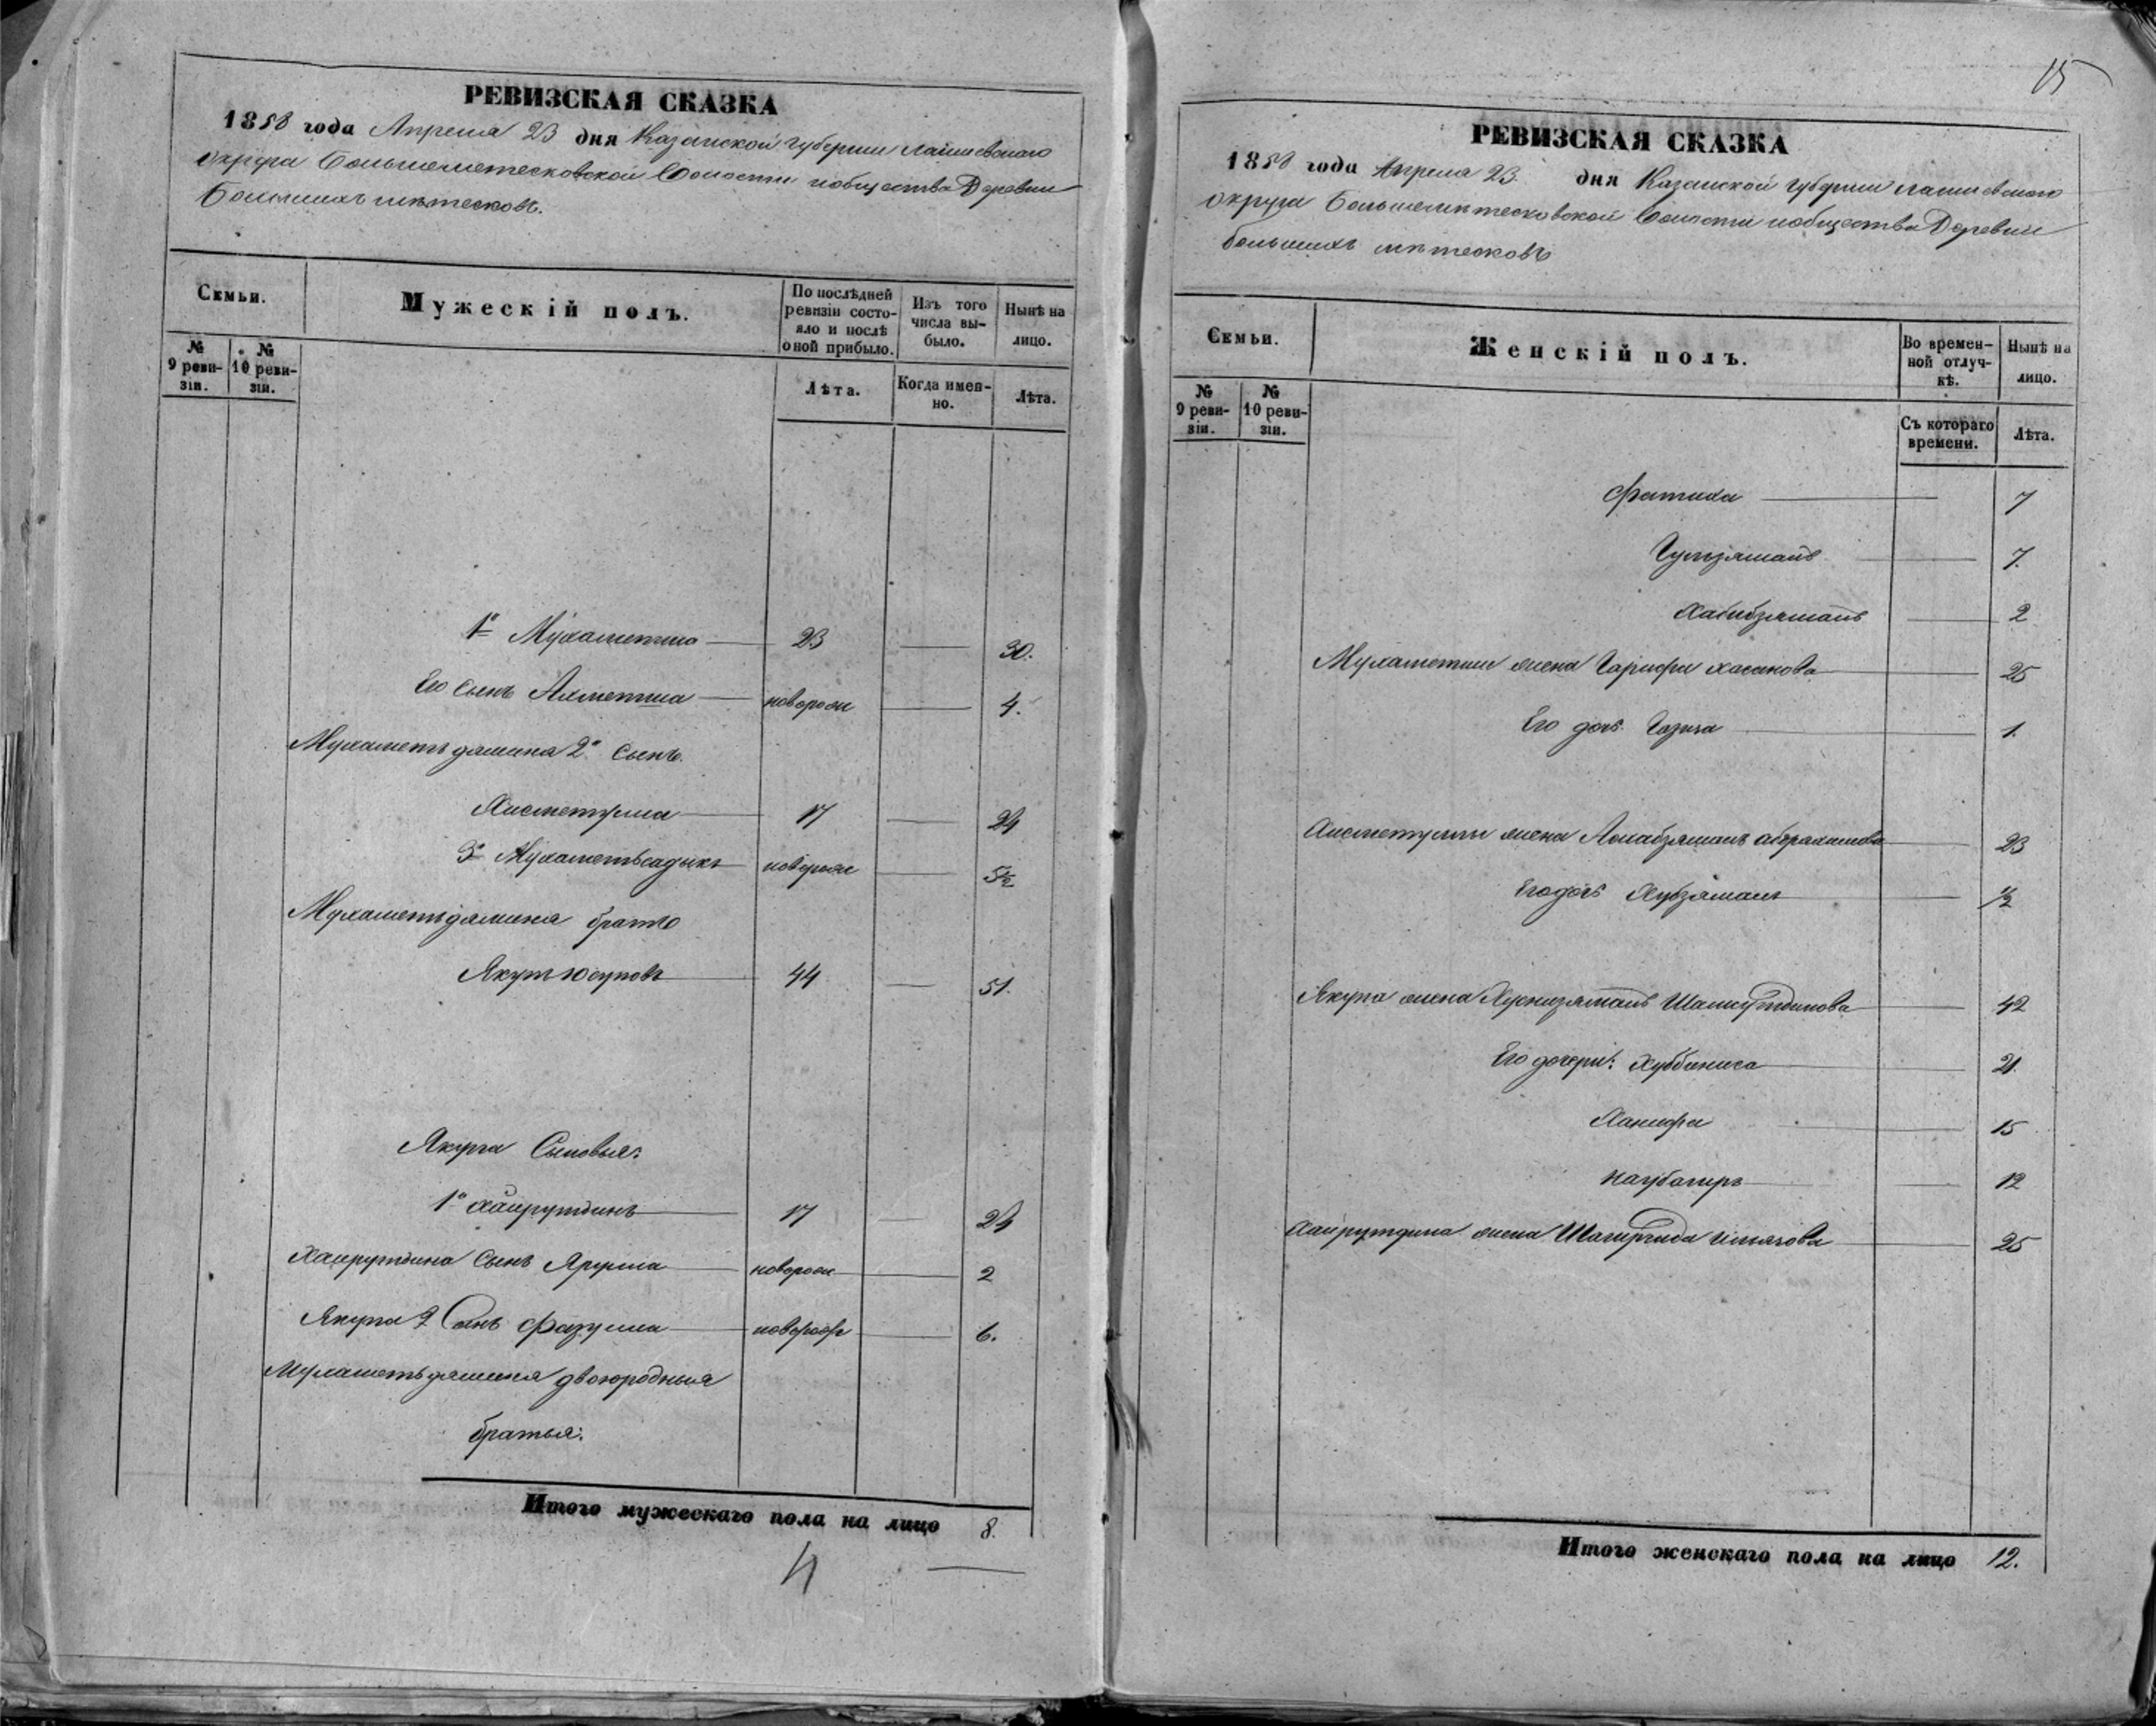 РЕВИЗСКАЯ СКАЗКА
1858 года Апреля 23 дня Казанской губернии Лаишевскаго
округа Большеметесковской волости и общества Деревни
Большихъ метесковъ.
Семьи.
Мужескій полъ.
По послѣдней ревизіи состояло и послѣ оной прибыло.
Изъ того числа выбыло.
Нынѣ на лицо.
№ 9 ревизіи.
№ 10 ревизіи.
Лѣта.
Когда именно.
Лѣта.
1º Мухаметша 23 30.
Его сынъ Ахметша новорож 4.
Мухаметъдямина 2º сынъ
Хисметулла 17 24
3º Мухаметьсадыкъ новорож 5½
Мухаметьдямина братъ
Якупъ Юсуповъ 44 51.
Якупа Сыновья:
1º Хайрутдинъ 17 24
Хайрутдина сынъ Ярулла новорож 2
Якупа 2 сынъ Фазулла новорож 6.
Мухаметьдямина двоюродныя
братья:
Итого мужескаго пола на лицо 8.
15
РЕВИЗСКАЯ СКАЗКА
1858 года Апреля 23. дня Казанской губернии Лаишевскаго
округа Большеметесковской волости и общества Деревни
большихъ метесковъ
Семьи.
Женскій полъ.
Во временной отлучкѣ.
Нынѣ на лицо.
№ 9 ревизіи.
№ 10 ревизіи.
Съ котораго времени.
Лѣта.
Фатиха 7
Гульзямалъ 7.
Хабибзямалъ 2
Мухаметши жена Гарифа Хасанова 25
Его дочь Газиза 1.
Хисметуллы жена 23
Его дочь Хубзямалъ ½
Якупа жена Хуснизямалъ Шамсутдинова 42
Его дочери: Хуббиниса 21.
Ханифа 15
12
Хайрутдина жена 25
Итого женскаго пола на лицо 12.